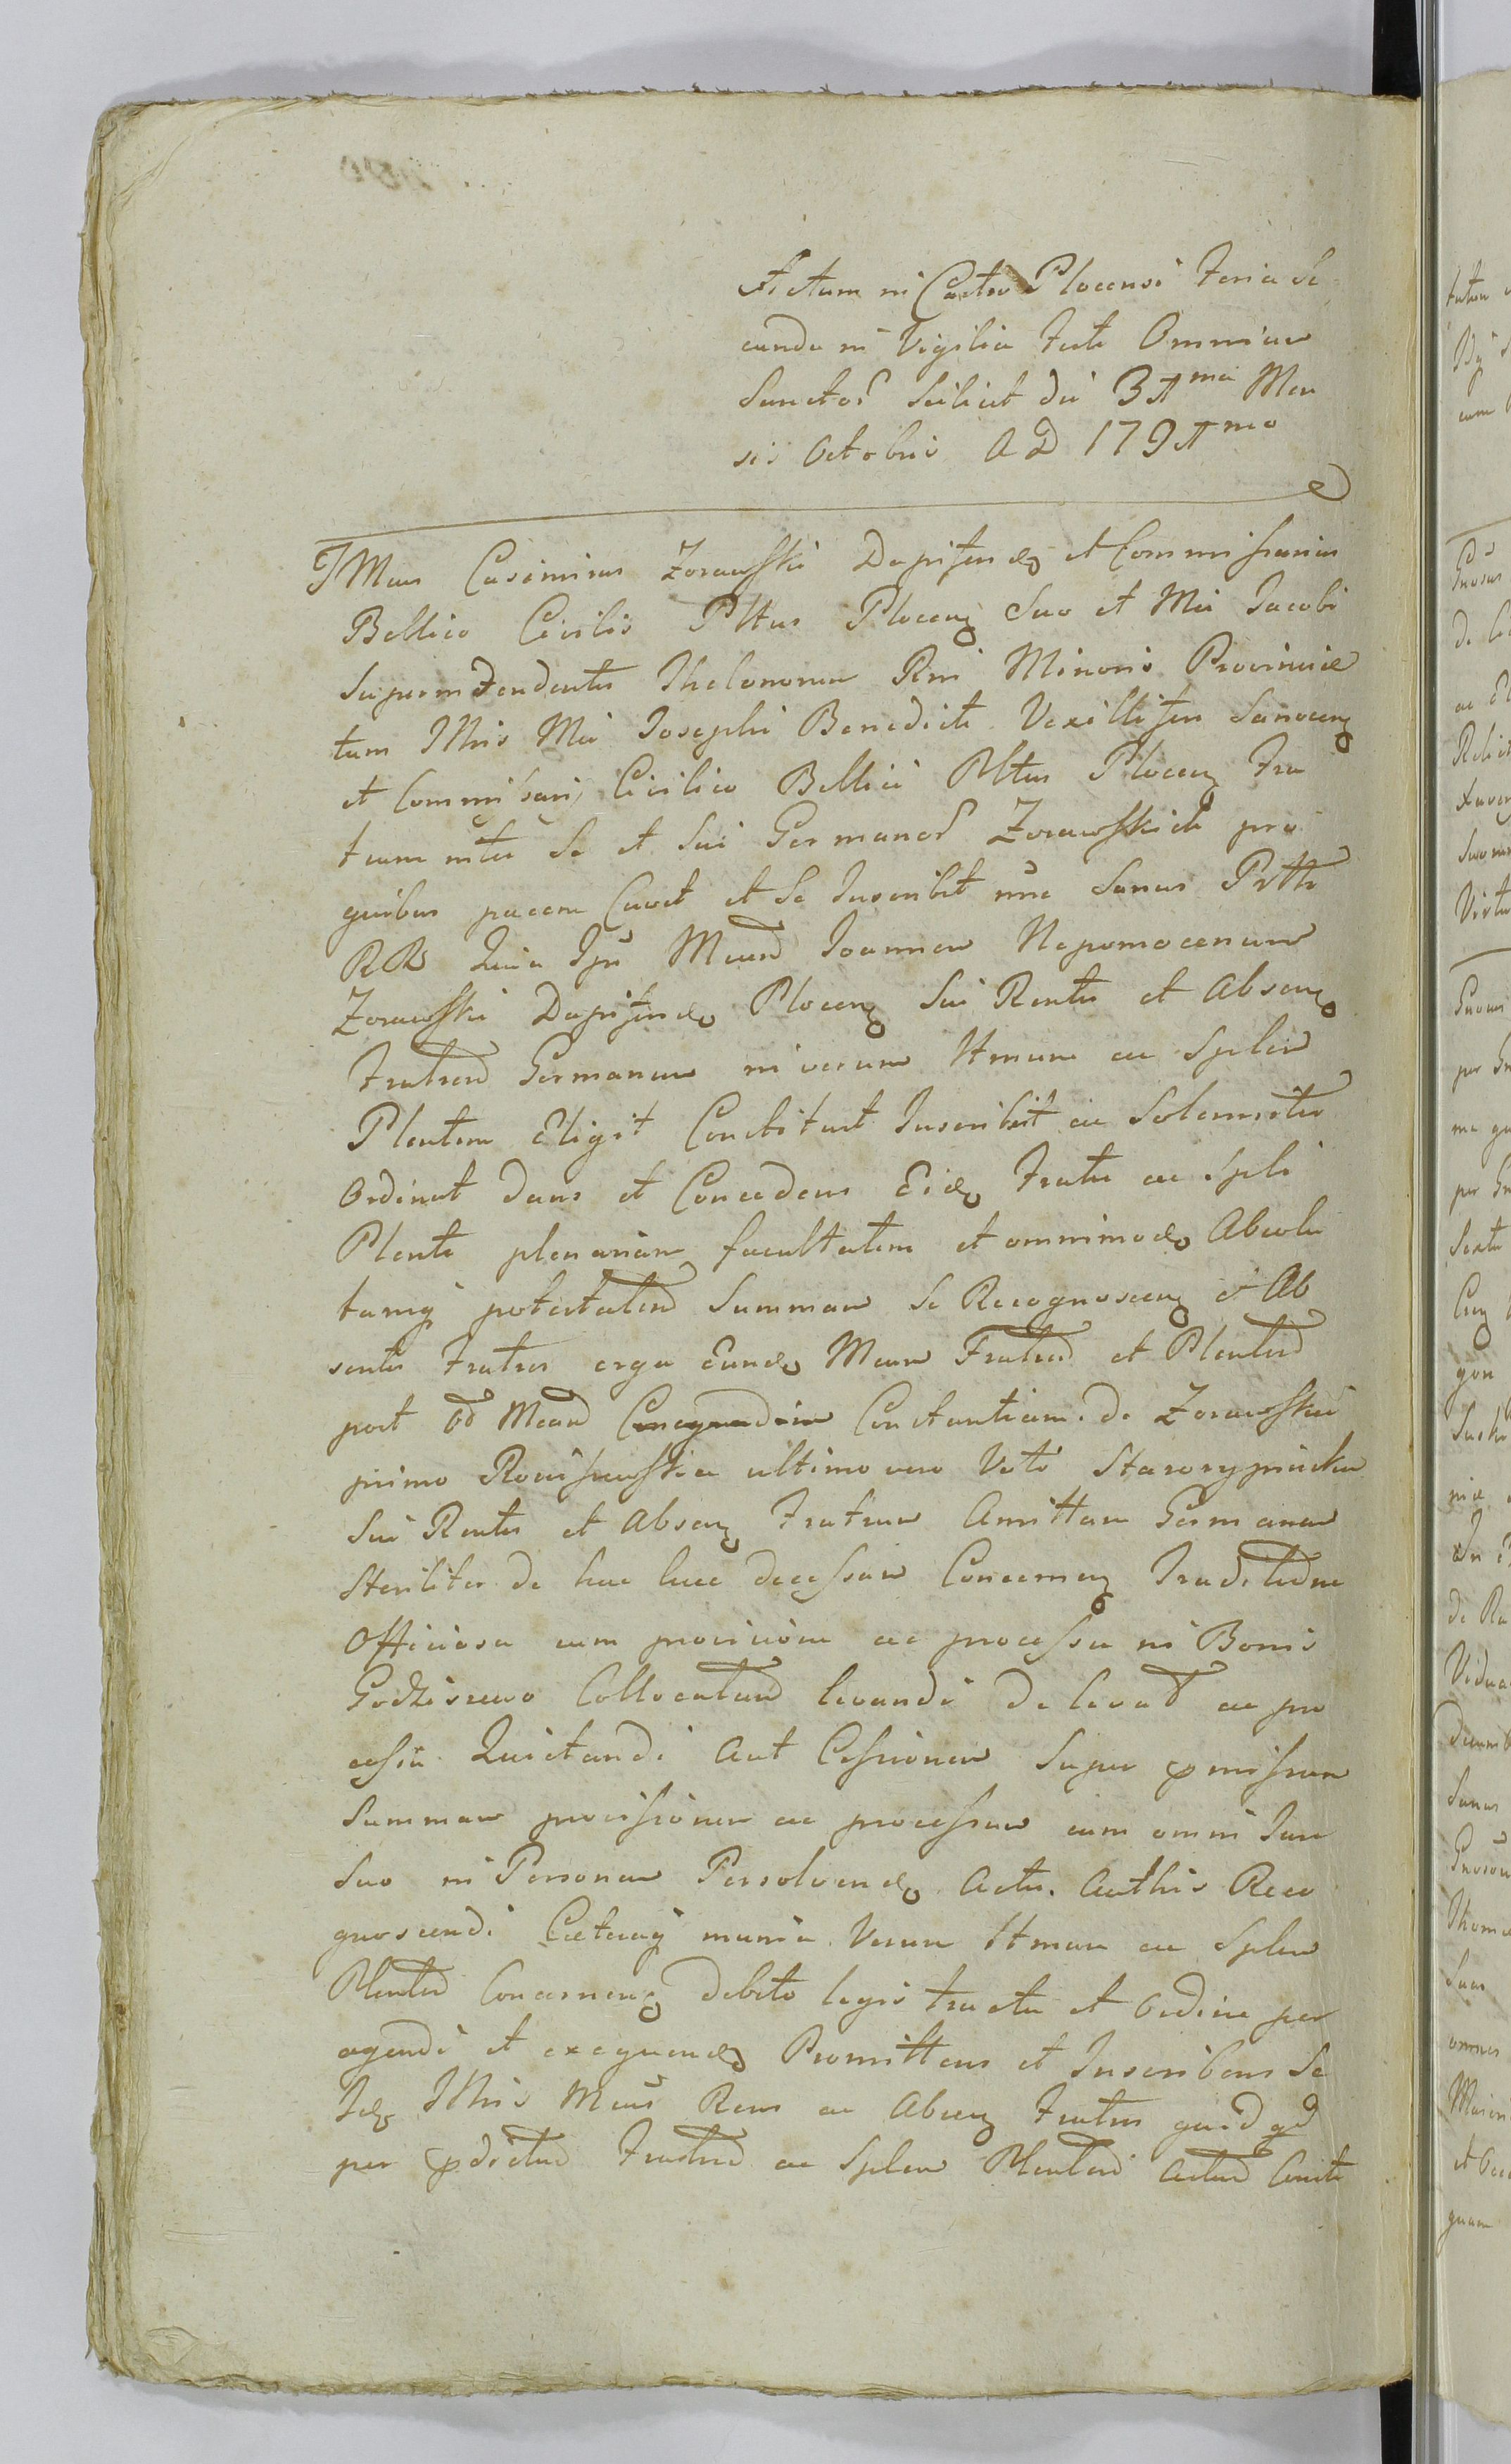 Actum in Castro Plocensi Feria Se
cunda in Vigilia Festi Omnium
Sanctor Scilicet die 31ma Men
sis Octobris A D 1791mo
IMcus Casimirus Zorawski Dapiferides et Commissarius
Bellico Civilis Pltus Plocen Suo et Mci Jacobi
Superintendentis Theloneorum Rni Minoris Provinciæ
tum Illris Mci Josephi Benedicti Vexilliferi Sanocen
et Commissarii Civilico Bellici Pltus Plocen Fra
trum inter Se et Sui Germanor Zorawskich pro
quibus pacem Cavet et Se Inscribit nunc Sanus Prtti
RR Quia Ipse Mcum Joannem Nepomocenum
Zorawski Dapiferides Plocen Sui Rentis et Absen
Fratrem Germanum in verum Ltmum ac Splem
Plentem Eligit Constituit Inscribit ac Solemniter
Ordinat dans et Concedens Eid Fratri ac Spli
Plenti plenariam facultatem et omnimod Absolu
tamq potestatem Summam Se Recognoscen et Ab
sentis Fratres erga Eund Mcum Fratrem et Plentem
post od Mcam Constantiam de Zorawskie
primo Rocissewska ultimo vero Voto Starorypinska
Sui Rentis et Absen Fratrum Amittam Germanam
Steriliter de hac luce decessam Concernen Traditione
Officiosa cum provisione ac processu in Bonis
Godziszewo Collocatam levandi de levat ac pro
cessu Quietandi Aut Cessionem Super pmissam
Summam provissionem ac processum cum omni Jure
Suo in Personam Persolvend Actis Authis Reco
gnoscendi Cæteraq munia Verum Ltmum ac Splem
Plentem Concernen debito legis tractu et Ordine per
agendi et exequend Promittens et Inscribens Se
Id Illris Mcus Rens ac Absen Fratres quid qd
per pdictum Fratrem ac Splem Plentem Actum